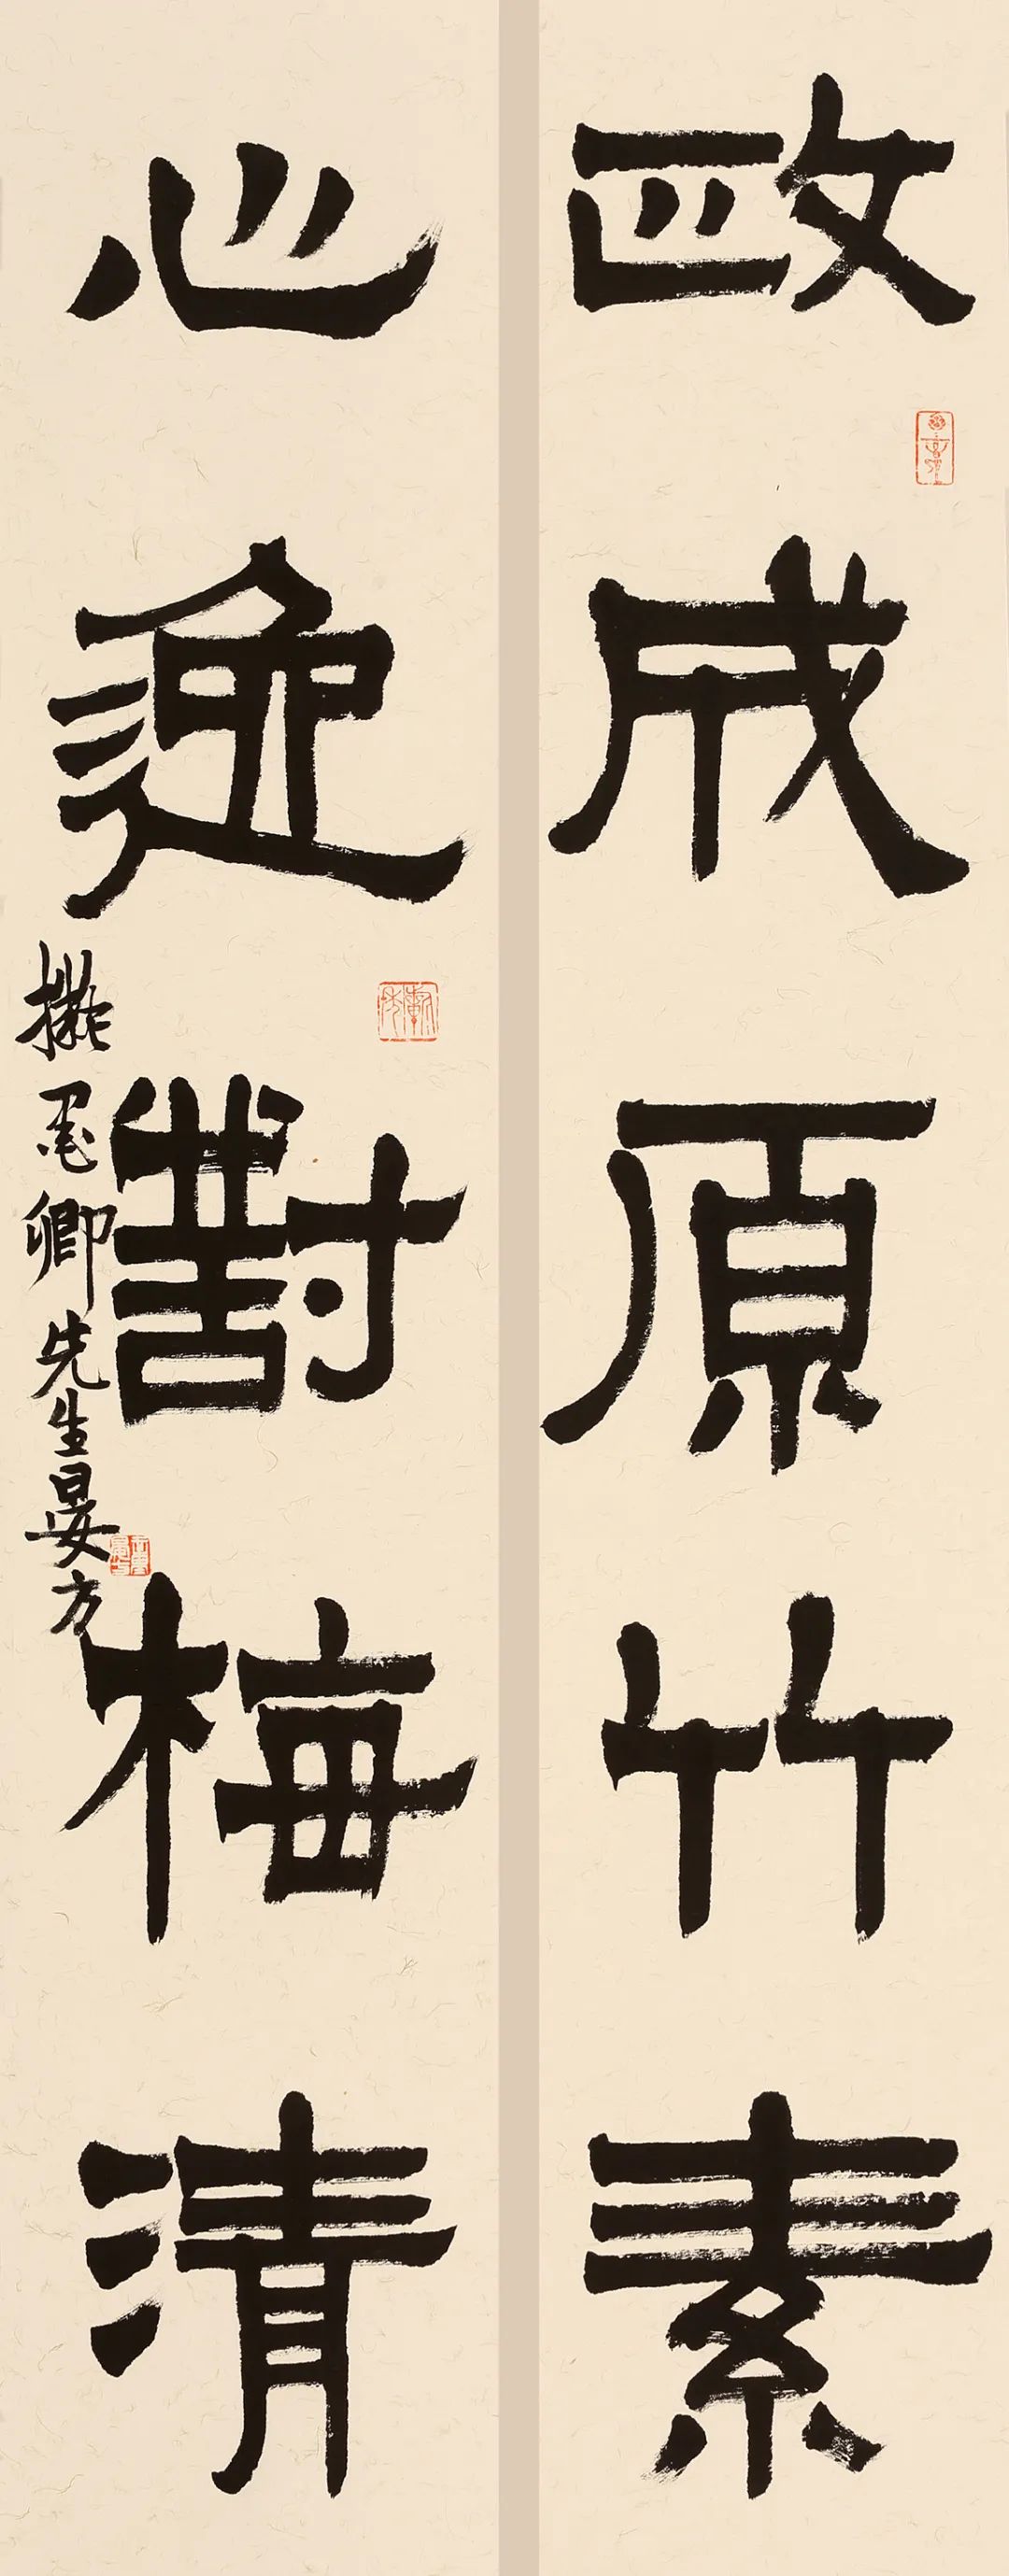 政成原竹素
心逸對梅清
擬墨卿先生晏方